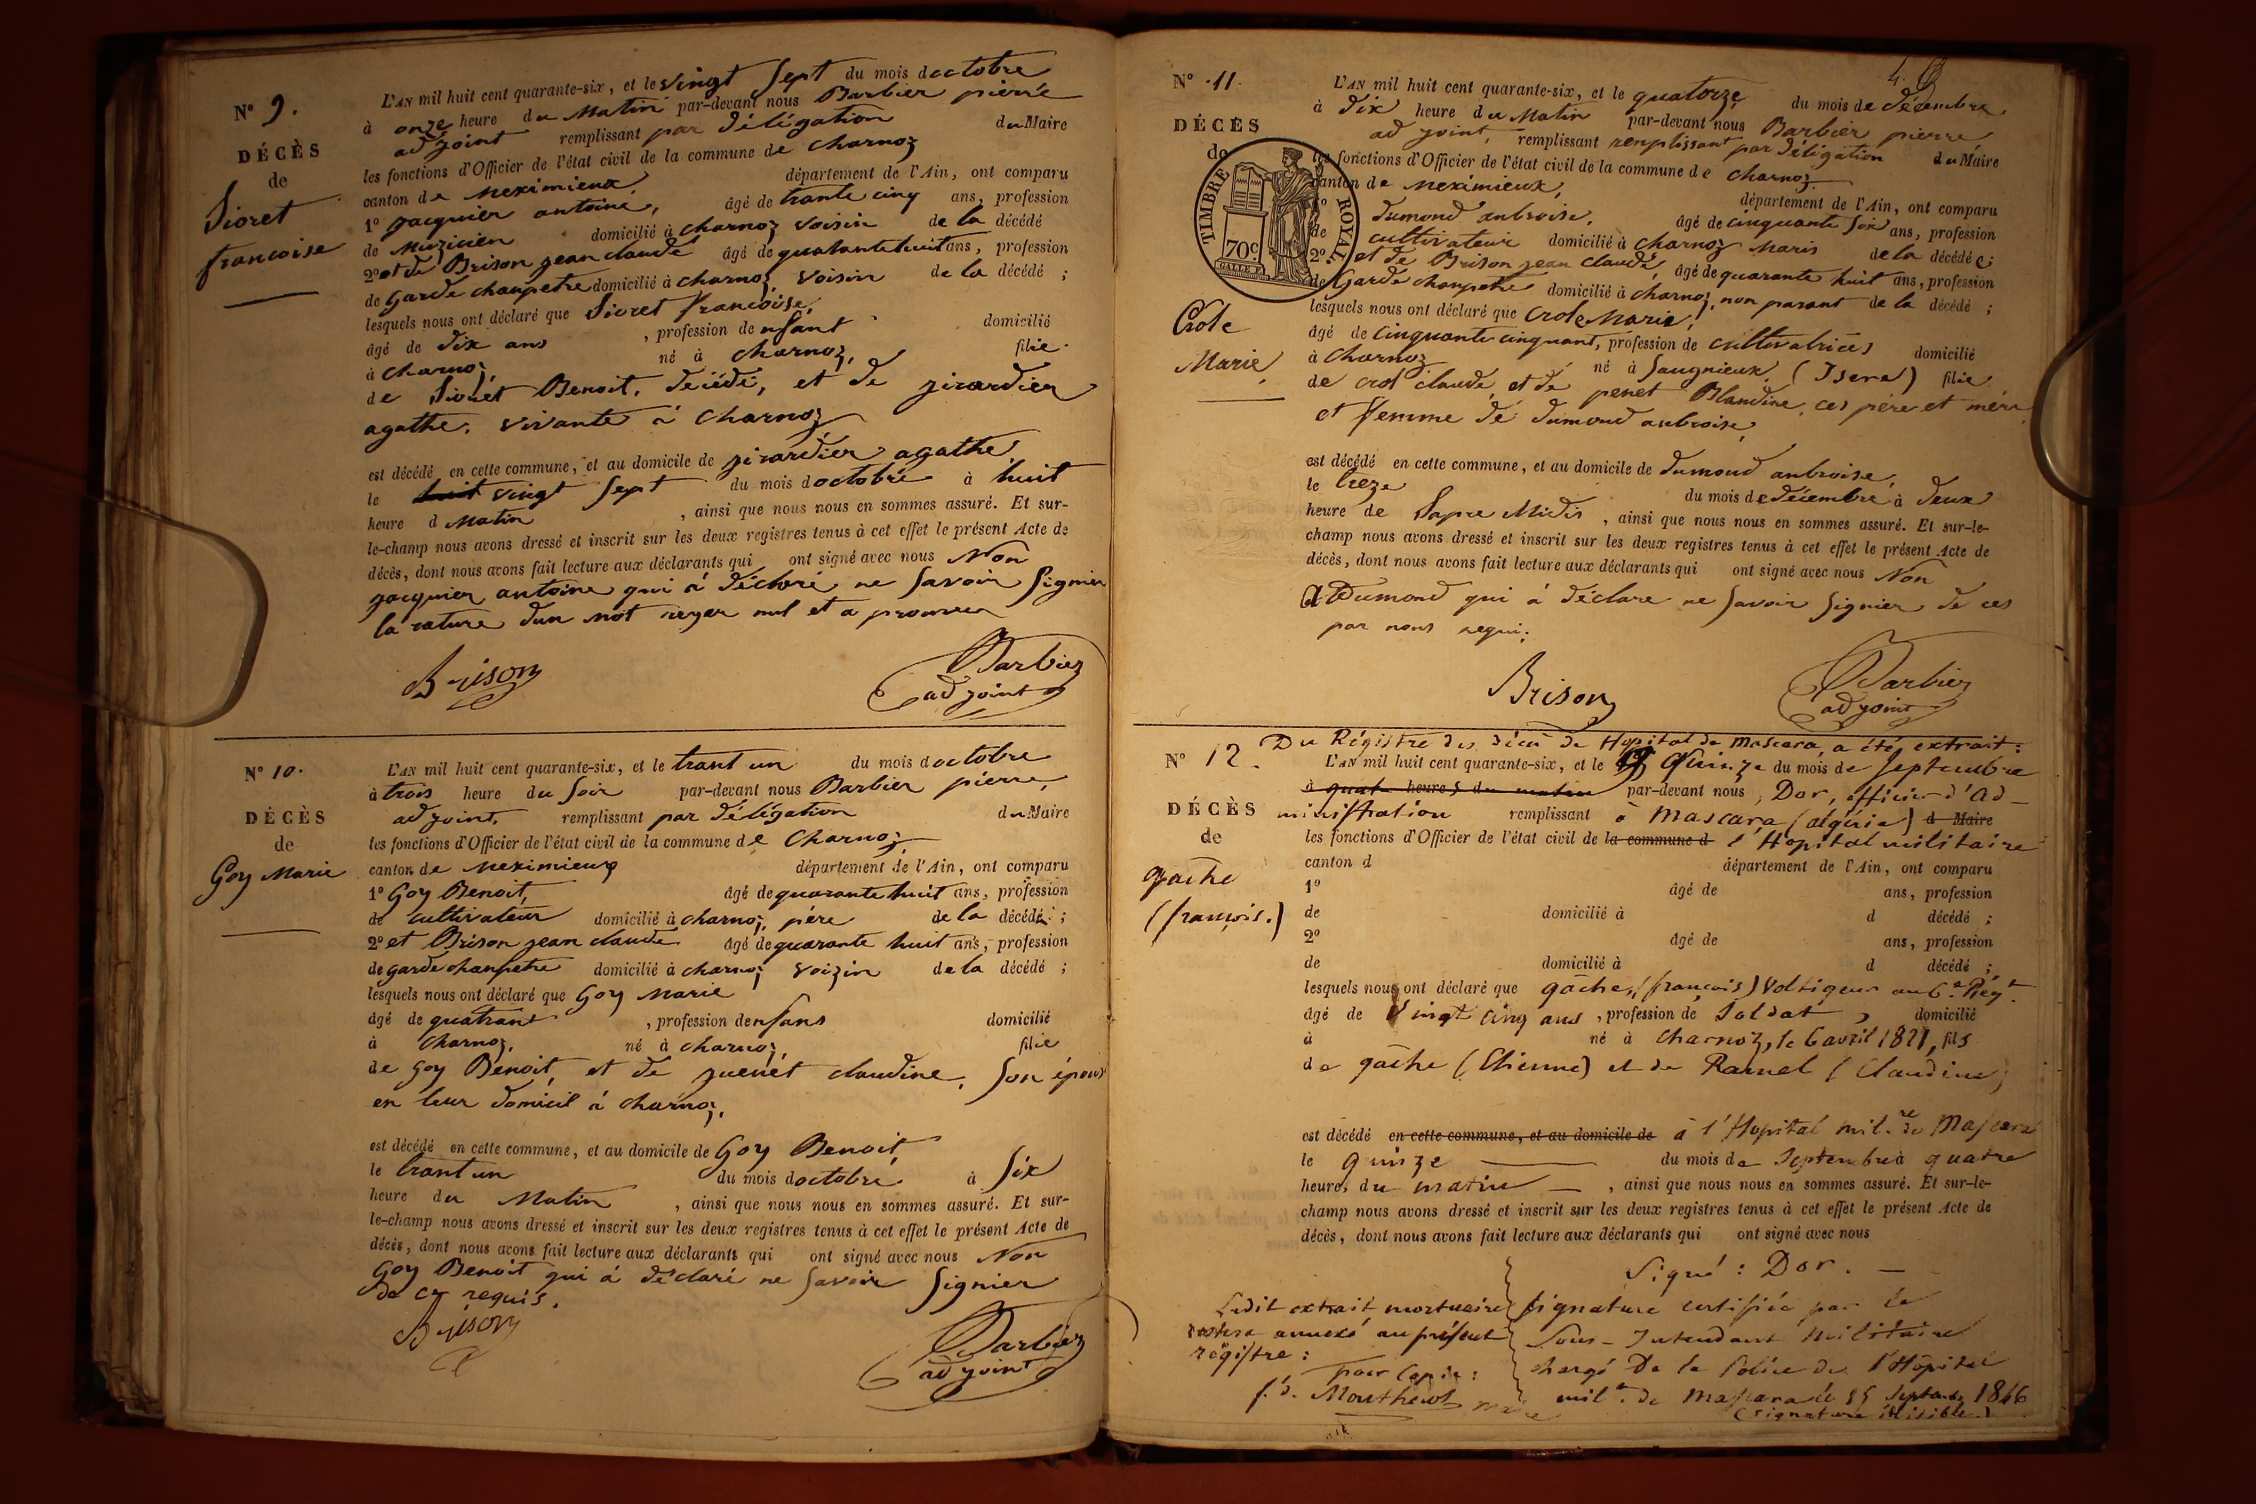 N° 9.
DÉCÈS
de
Sioret
francoise
L'AN mil huit cent quarante-six, et le vingt sept du mois doctobre
à onze heure du Matin par-devant nous Barbier pierre
adjoint remplissant par délégation du Maire
les fonctions d'Officier de l'état civil de la commune de charnoz
canton de meximieux, département de l'Ain, ont comparu
1° jacquier antoine, âgé de trante cinq ans, profession
de Muzicien domicilié à charnoz voisin de la décédé
2° et de Brison jean claude âgé de quatante huit ans, profession
de Garde chanpetre domicilié à charnoz, voisin de la décédé ;
lesquels nous ont déclaré que Sioret francoise,
âgé de dix ans , profession denfant domicilié
à charnoz, né à charnoz, filie
de Sioret Benoit, décédé, et de jirardier
agathe, vivante à charnoz
est décédé en cette commune, et au domicile de jirardier agathe,
le huit vingt sept du mois doctobre à huit
heure d Matin , ainsi que nous nous en sommes assuré. Et sur-
le-champ nous avons dressé et inscrit sur les deux registres tenus à cet effet le présent Acte de
décès, dont nous avons fait lecture aux déclarants qui ont signé avec nous Non
jacquier antoine qui à déclaré ne savoir Signier
la rature dun mot
Brison
Barbier
adjoint
N° 10.
DÉCÈS
de
Goy Marie
L'AN mil huit cent quarante-six, et le trant un du mois doctobre
à trois heure du soir par-devant nous Barbier pierre,
adjoint, remplissant par délégation du Maire
les fonctions d'Officier de l'état civil de la commune de Charnoz
canton de meximieux département de l'Ain, ont comparu
1° Goy Benoit, âgé de quarante huit ans, profession
de cultivateur domicilié à charnoz, pere de la décédé ;
2° et Brison jean claude âgé de quarante huit ans, profession
de garde chanpetre domicilié à charnoz voizin de la décédé ;
lesquels nous ont déclaré que Goy Marie
âgé de quatrant , profession denfans domicilié
à charnoz, né à charnoz, filie
de Goy Benoit, et de juenet claudine, son épous
en leur domicil à charnoz,
est décédé en cette commune, et au domicile de Goy Benoit,
le trant un du mois doctobre à Six
heure du Matin , ainsi que nous nous en sommes assuré. Et sur-
le-champ nous avons dressé et inscrit sur les deux registres tenus à cet effet le présent Acte de
décès, dont nous avons fait lecture aux déclarants qui ont signé avec nous Non
Goy Benoit qui à déclaré ne savoir Signier
de ce requis.
Brison
Barbier
adjoint
N° 11.
DÉCÈS
de
TIMBRE ROYAL
70c
Crole
Marie,
L'AN mil huit cent quarante-six, et le quatorze du mois de décembre,
à dix heure du Matin par-devant nous Barbier pierre
adjoint, remplissant remplissant par délégation du Maire
les fonctions d'Officier de l'état civil de la commune de charnoz
canton de meximieux, département de l'Ain, ont comparu
1° dumond anbroise, âgé de cinquante six ans, profession
de cultivateur domicilié à charnoz Maris de la décédée
2° et de Brison jean claude, âgé de quarante huit ans, profession
de Garde chanpetre domicilié à charnoz, non parant de la décédé ;
lesquels nous ont déclaré que Crole Marie,
âgé de cinquante cinquant, profession de cultivatrices domicilié
à charnoz né à Saugnieux, (Isere) filie
de crol claude, et de penet Blandine, ces père et mère
et femme de dumond anbroise,
est décédé en cette commune, et au domicile de dumond anbroise,
le treze du mois de décembre à deux
heure de Lapre Midis , ainsi que nous nous en sommes assuré. Et sur-le-
champ nous avons dressé et inscrit sur les deux registres tenus à cet effet le présent Acte de
décès, dont nous avons fait lecture aux déclarants qui ont signé avec nous Non
Dumond qui à déclare ne savoir Signier de ces
par nous requi.
Brison
Barbier
adjoint
N° 12.
DÉCÈS
de
gache
(françois.)
Du Régistre des décès de Hopital de Mascara, a été extrait :
L'AN mil huit cent quarante-six, et le Quinze du mois de Septembre
à quatre heures du matin par-devant nous, Dor, officier d'Ad-
ministration remplissant à Mascara (algérie) d Maire
les fonctions d'Officier de l'état civil de la commune d l'Hopital militaire
canton d département de l'Ain, ont comparu
1° âgé de ans, profession
de domicilié à d décédé ;
2° âgé de ans, profession
de domicilié à d décédé ;
lesquels nous ont déclaré que gâche, (françois) Voltigeur au 6e Régt.
âgé de Vingt cinq ans , profession de Soldat, domicilié
à né à Charnoz, le 6 avril 1821, fils
de gâche (Etienne) et de Ramel (Claudine)
est décédé en cette commune, et au domicile de à l'Hopital milre de Mascara
le quinze du mois de Septembre à quatre
heures du matin , ainsi que nous nous en sommes assuré. Et sur-le-
champ nous avons dressé et inscrit sur les deux registres tenus à cet effet le présent Acte de
décès, dont nous avons fait lecture aux déclarants qui ont signé avec nous
Signé : Dor.
Ledit extrait mortuaire
restera annexé au présent
régistre :
pour Copie :
Signature certifiée par le
Sous-Intendant Militaire
chargé De la Police de l'Hôpital
mil. de Mascara le 15 Septembre 1846
(signature illisible.)